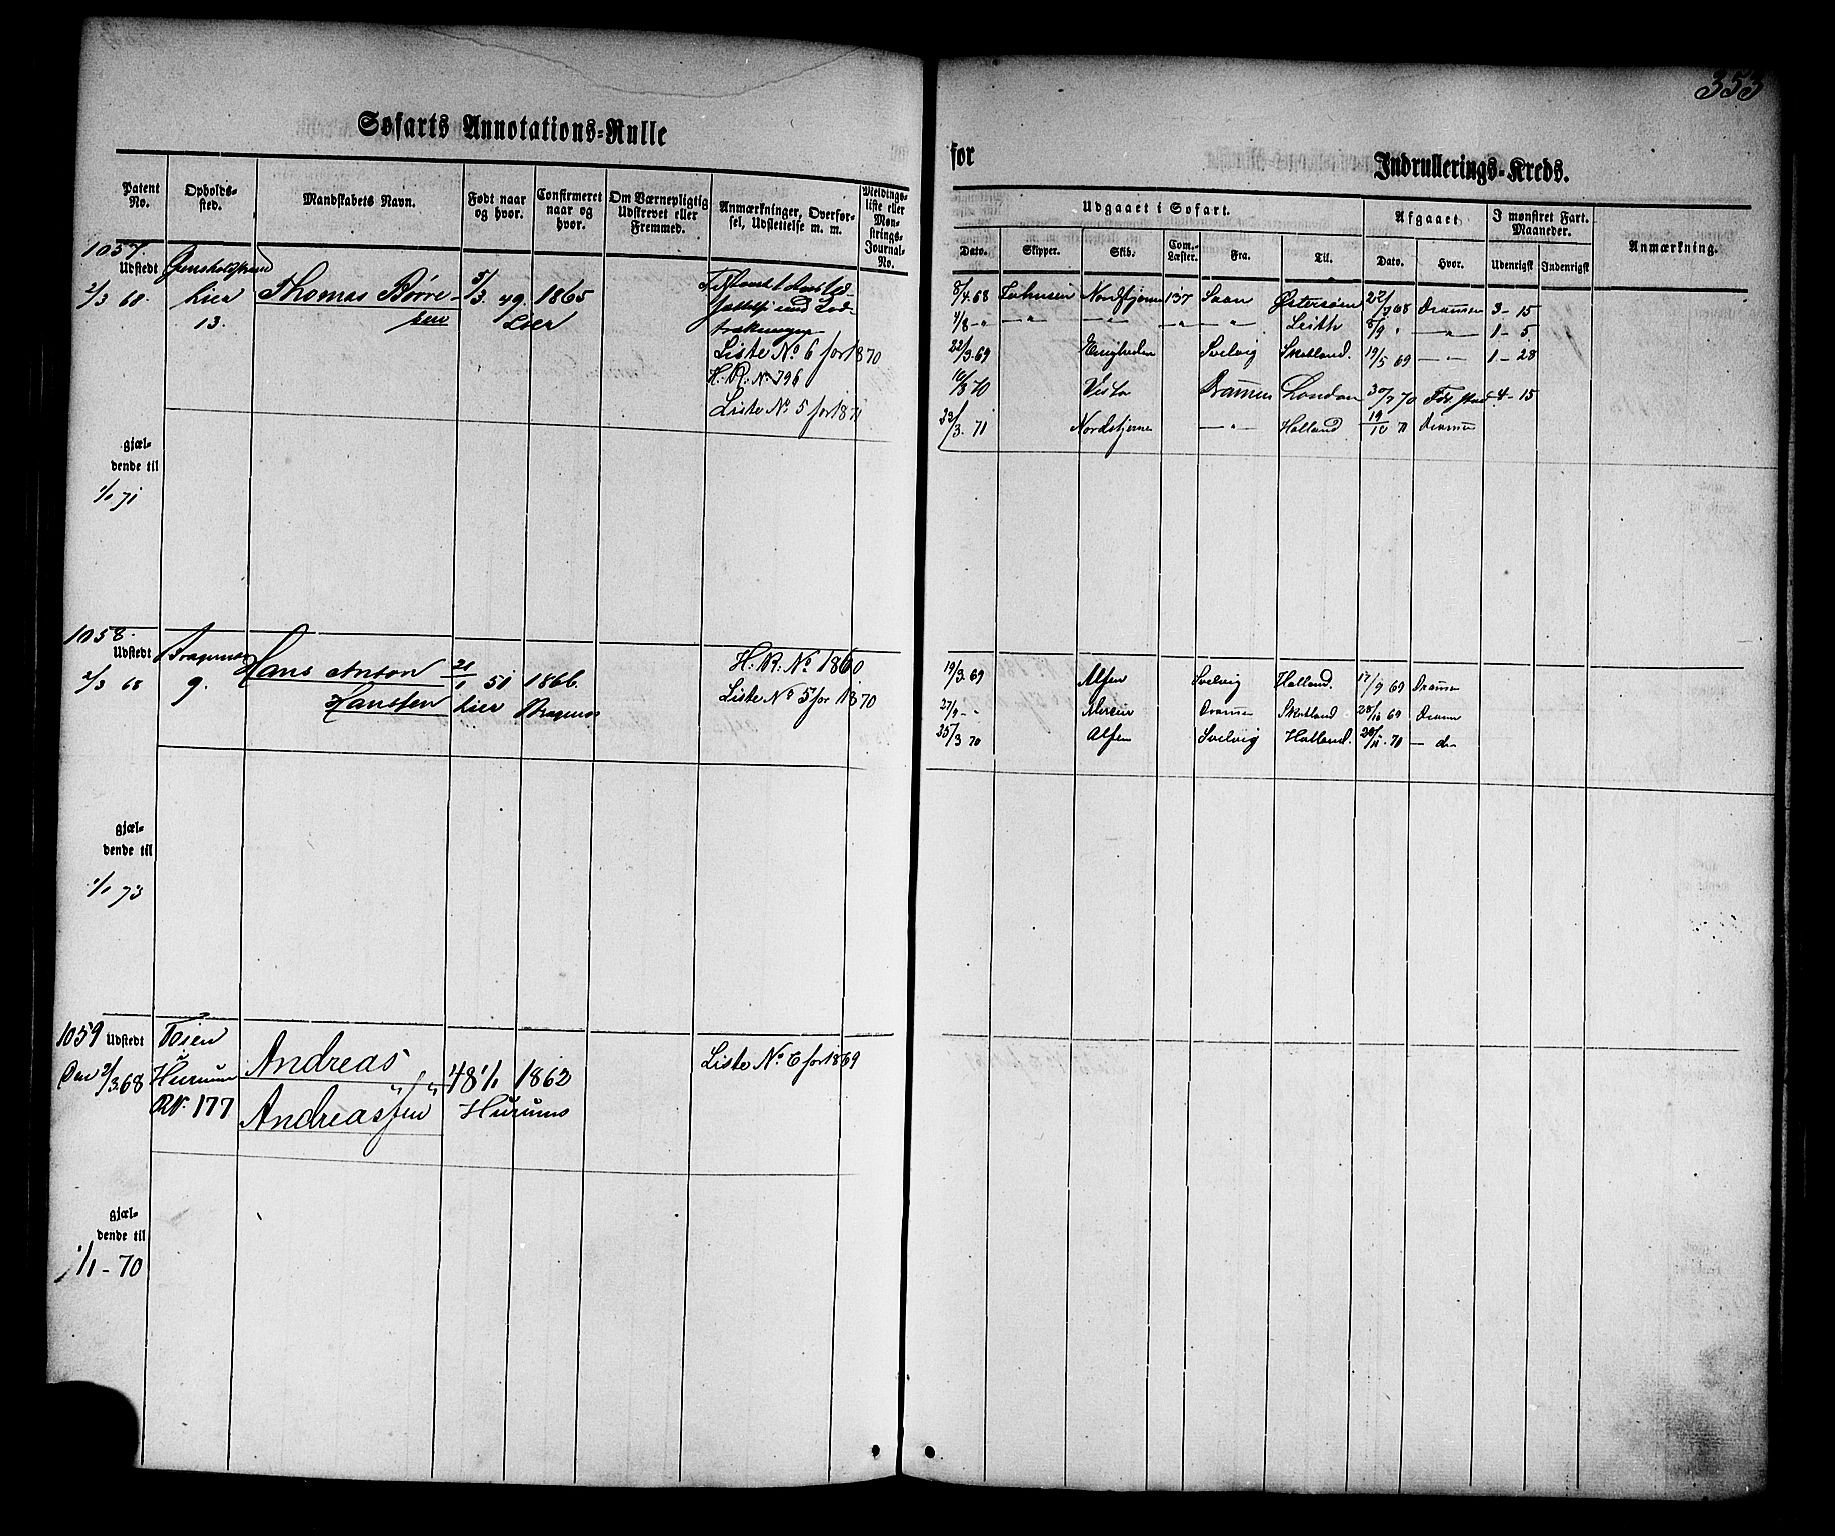 353
Søfarts Annotations-Rulle
for
Indrullerings-Kreds.
Patent No.
Opholds-sted.
Mandskabets Navn.
Født naar og hvor.
Confirmeret naar og hvor.
Om Værnepligtig Udskrevet eller Fremmed.
Anmærkninger, Overførsel, Udslettelse m. m.
Meldings-liste eller Mønstrings-Journal-No.
Udgaaet i Søfart.
Afgaaet
I mønstret Fart. Maaneder.
Anmærkning.
Dato.
Skipper.
Skib.
Com.-Læster.
Fra.
Til.
Dato.
Hvor.
Udenrigst
Indenrigst
1057.
Udstedt
2/3 68.
Lier
13.
Thomas Børre-
sen
5/3. 49.
Lier
1865
Liste No 6 for 1870
H. R: No 796
Liste No 5 for 1871
8/4.68 Nordstjernen 137 Østersøen 22/7 68 Drammen 3-15
4/8 - " — " — — " — " " Leith 8/9 " — " — 1-5
22/3.69 Enigheden Svelvig Skotland. 19/5 69 — " — 1-28
10/3 70 Vesta Drammen London 30/7 70 Fdr. stad 4-15
23/3. 71 Nordstjerne — " — Holland 19/10 71 Dramm
gjæl-
dende til
1/1 71
1058.
Udstedt
2/3 68
Bragernes
9.
Hans Anton
Hansen
21/1 51
Lier
1866.
Bragernes
H. R: No 1860.
Liste No 5 for 1870
19/3.69 Svelvig Holland. 17/9 69 Dramm
27/9 - " Dramm Skotland 28/10 69 Dramm
25/3 70 Svelvig Holland. 28/11. 70 — do
gjæl-
dende til
1/1 73
1059 Udstedt
Den 2/3.68
Tøien
Hurum
RN. 177
Andreas
Andreassen
48 1/1
1862
Hurum
Liste No. 6 for 1869
gjæl-
dende til
1/1 - 70